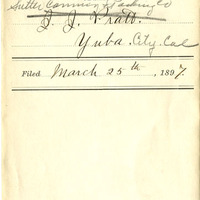 Sutter Canning & Packing Co
F. J. Pratt.
Yuba City Cal
Filed March 25th, 1897.